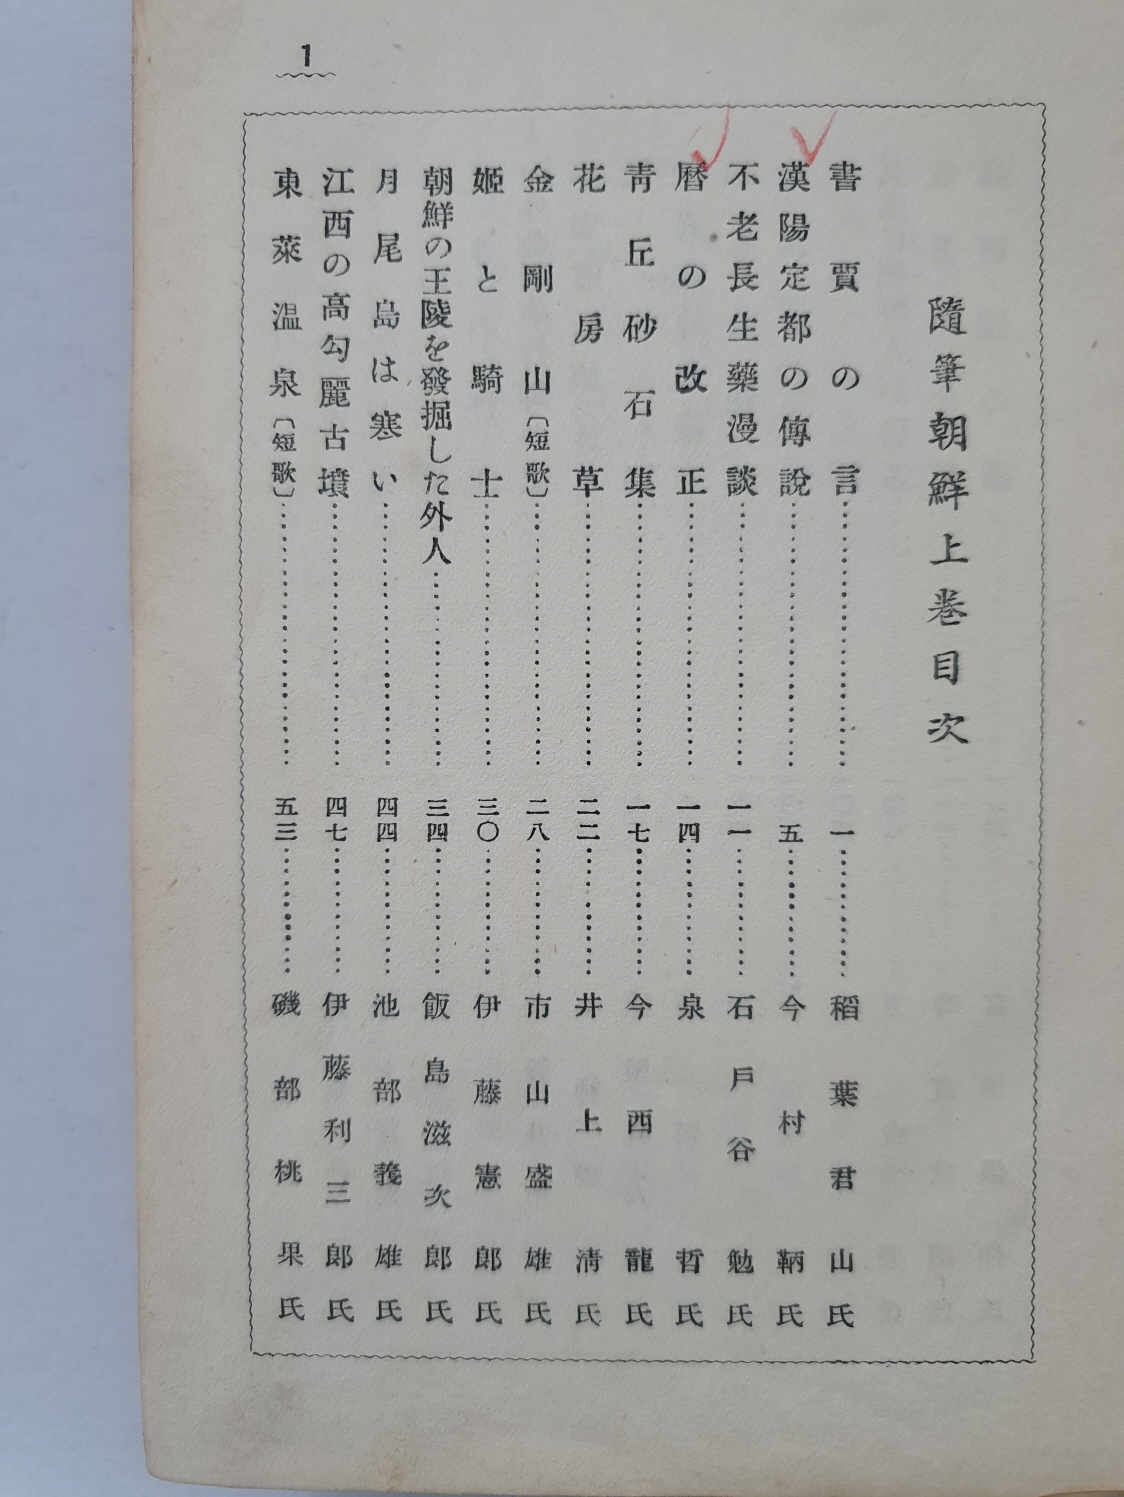 1
隨筆朝鮮上卷目次
書賈の言……一……稻葉君山氏
漢陽定都の傳說……五……今村鞆氏
不老長生藥漫談……一一……石戶谷勉氏
曆の改正……一四……泉哲氏
靑丘砂石集……一七……今西龍氏
花房草……二二……井上淸氏
金剛山〔短歌〕……二八……市山盛雄氏
姬と騎士……三〇……伊藤憲郎氏
朝鮮の王陵を發掘した外人……三四……飯島滋次郎氏
月尾島は寒い……四四……池部義雄氏
江西の高勾麗古墳……四七……伊藤利三郎氏
東萊溫泉〔短歌〕……五三……磯部桃果氏